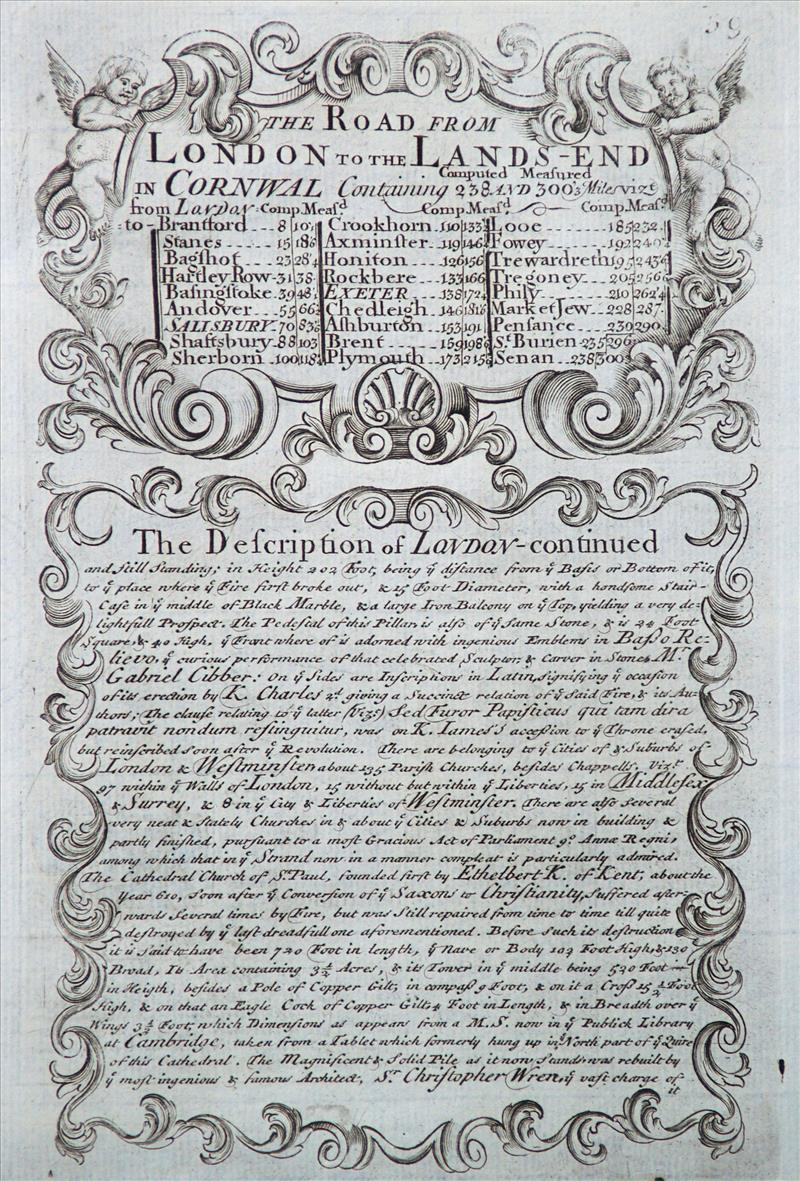 59
THE ROAD FROM
LONDON TO THE LANDS-END
Computed Measured
IN CORNWAL Containing 238 AND 300¾ Miles vizt
from LONDON Comp. Measd Comp. Measd Comp. Measd
to Brantford 8 10¼
Stanes 15 18¾
Bagshot 23 28¼
Hartley Row 31 38
Basingstoke 39 48
Andover 55 66
SALISBURY 70 83
Shaftsbury 88 103
Sherborn 100 118
Crookhorn 110 133
Axminster 119 146
Honiton 126 156
Rockbere 133 166
EXETER 138 172
Chedleigh 146 181
Ashburton 153 191
Brent 159 198
Plymouth 173 215
Looe 185 232
Fowey 192 240
Trewardreth 195 243
Tregoney 205 256
Phily 210 262
Market Jew 228 287
Pensance 230 290
St Burien 235 296
Senan 238 300
The Description of LONDON continued
and still standing; in Height 202 Foot, being ye distance from ye Basis or Bottom of it,
to ye place where ye Fire first broke out, & 15 Foot Diameter, with a handsome Stair-
Case in ye middle of Black Marble, & a large Iron Balcony on ye Top, yielding a very de-
lightfull Prospect. The Pedestal of this Pillar is also of ye same Stone, & is 24 Foot
Square, & 40 High, ye Front where of is adorned with ingenious Emblems in Basso Re-
lievo, ye curious performance of that celebrated Sculptor & Carver in Stone Mr
Gabriel Cibber: On ye sides are Inscriptions in Latin, signifying ye occasion
of its erection by K. Charles 2d giving a Succinct relation of ye said Fire, & its Au-
thors; The clause relating to ye latter (Vizt) Sed Furor Papisticus qui tam dira
patravit nondum restinguitur, was on K. Iames's accession to ye Throne erased,
but reinscribed soon after ye Revolution. There are belonging to ye Cities of & Suburbs of
London & Westminster about 135 Parish Churches, besides Chappells, Vizt
97 within ye Walls of London, 15 without but within ye Liberties, 15 in Middlesex
& Surrey, & 8 in ye City & Liberties of Westminster. There are also several
very neat & Stately Churches in & about ye Cities & Suburbs now in building &
partly finished, pursuant to a most Gracious Act of Parliament 9o Annæ Regni,
among which that in ye Strand now in a manner compleat is particularly admired.
The Cathedral Church of St. Paul, founded first by Ethelbert K. of Kent, about the
Year 610, soon after ye Conversion of ye Saxons to Christianity, suffered after-
wards several times by Fire, but was still repaired from time to time till quite
destroyed by ye last dreadfull one aforementioned. Before such its destruction
it is said to have been 720 Foot in length, ye Nave or Body 102 Foot High, & 130
Broad, Its Area containing 3½ Acres, & its Tower in ye middle being 520 Foot
in Heigth, besides a Pole of Copper Gilt, in compass 9 Foot, & on it a Cross 15½ Foot
High, & on that an Eagle Cock of Copper Gilt, 4 Foot in Length, & in Breadth over ye
Wings 3½ Foot, which Dimensions as appears from a M.S. now in ye Publick Library
at Cambridge, taken from a Tablet which formerly hung up in ye North part of ye Quire
of this Cathedral. The Magnificent & Solid Pile as it now stands was rebuilt by
ye most ingenious & famous Architect, Sr. Christopher Wren, ye vast charge of
it